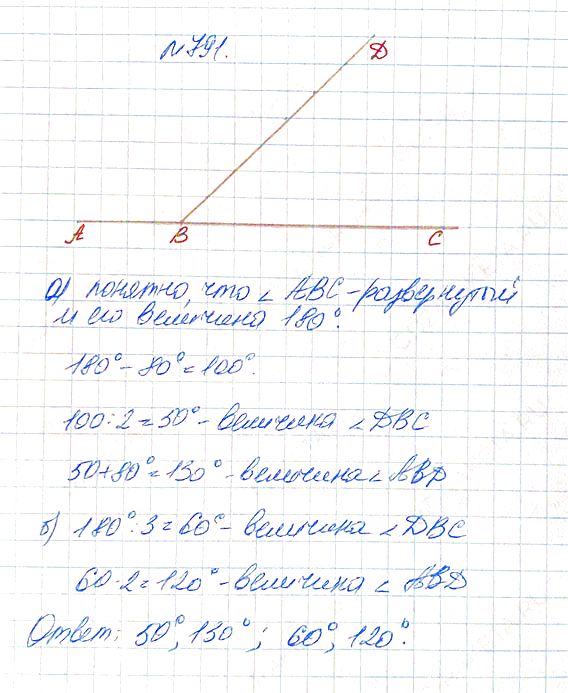 №791.
D
A B C
а) понятно, что ∠ ABC - развернутый
и его величина 180°.
180° - 80° = 100°.
100 : 2 = 50° - величина ∠ DBC
50 + 80° = 130° - величина ∠ ABD
б) 180° : 3 = 60° - величина ∠ DBC
60 · 2 = 120° - величина ∠ ABD
Ответ: 50°, 130°; 60°, 120°.